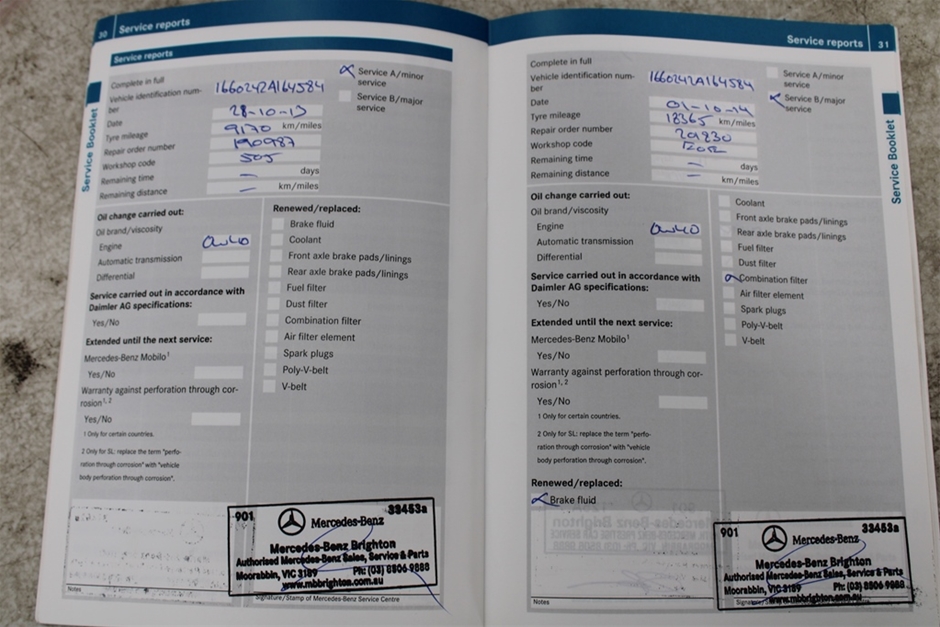 30 Service reports
Service reports
Service Booklet
Complete in full
Vehicle identification num-
ber 1660242A164584
Date 28-10-13
Tyre mileage 9170 km/miles
Repair order number 190987
Workshop code 505
Remaining time — days
Remaining distance — km/miles
Service A/minor
service
Service B/major
service
Oil change carried out:
Oil brand/viscosity
Engine 0w40
Automatic transmission
Differential
Service carried out in accordance with
Daimler AG specifications:
Yes/No
Extended until the next service:
Mercedes-Benz Mobilo¹
Yes/No
Warranty against perforation through cor-
rosion¹, ²
Yes/No
1 Only for certain countries.
2 Only for SL: replace the term "perfo-
ration through corrosion" with "vehicle
body perforation through corrosion".
Renewed/replaced:
Brake fluid
Coolant
Front axle brake pads/linings
Rear axle brake pads/linings
Fuel filter
Dust filter
Combination filter
Air filter element
Spark plugs
Poly-V-belt
V-belt
901 Mercedes-Benz 33453a
Mercedes-Benz Brighton
Authorised Mercedes-Benz Sales, Service & Parts
Moorabbin, VIC 3189 Ph: (03) 8806 9888
www.mbbrighton.com.au
Notes
Signature/Stamp of Mercedes-Benz Service Centre
Service reports 31
Service Booklet
Complete in full
Vehicle identification num-
ber 1660242A164584
Date 01-10-14
Tyre mileage 18365 km/miles
Repair order number 29830
Workshop code
Remaining time — days
Remaining distance — km/miles
Service A/minor
service
Service B/major
service
Oil change carried out:
Oil brand/viscosity
Engine 0w40
Automatic transmission
Differential
Service carried out in accordance with
Daimler AG specifications:
Yes/No
Extended until the next service:
Mercedes-Benz Mobilo¹
Yes/No
Warranty against perforation through cor-
rosion¹, ²
Yes/No
1 Only for certain countries.
2 Only for SL: replace the term "perfo-
ration through corrosion" with "vehicle
body perforation through corrosion".
Renewed/replaced:
Brake fluid
Coolant
Front axle brake pads/linings
Rear axle brake pads/linings
Fuel filter
Dust filter
Combination filter
Air filter element
Spark plugs
Poly-V-belt
V-belt
901 Mercedes-Benz 33453a
Mercedes-Benz Brighton
Authorised Mercedes-Benz Sales, Service & Parts
Moorabbin, VIC 3189 Ph: (03) 8806 9888
www.mbbrighton.com.au
Notes